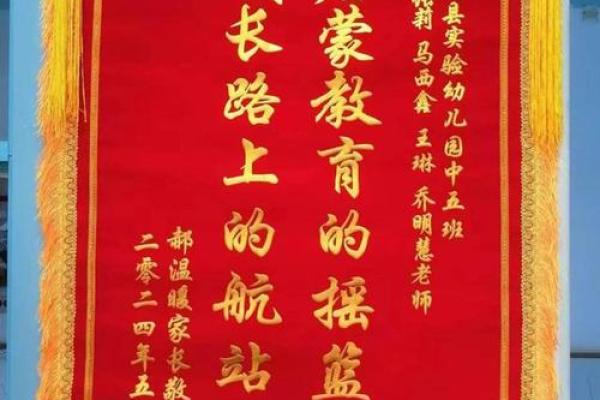 县实验幼儿园中五班
莉 马西鑫 王琳 乔明慧老师
蒙教育的摇篮
长路上的航站
郝温暖家长敬
二零二四年五